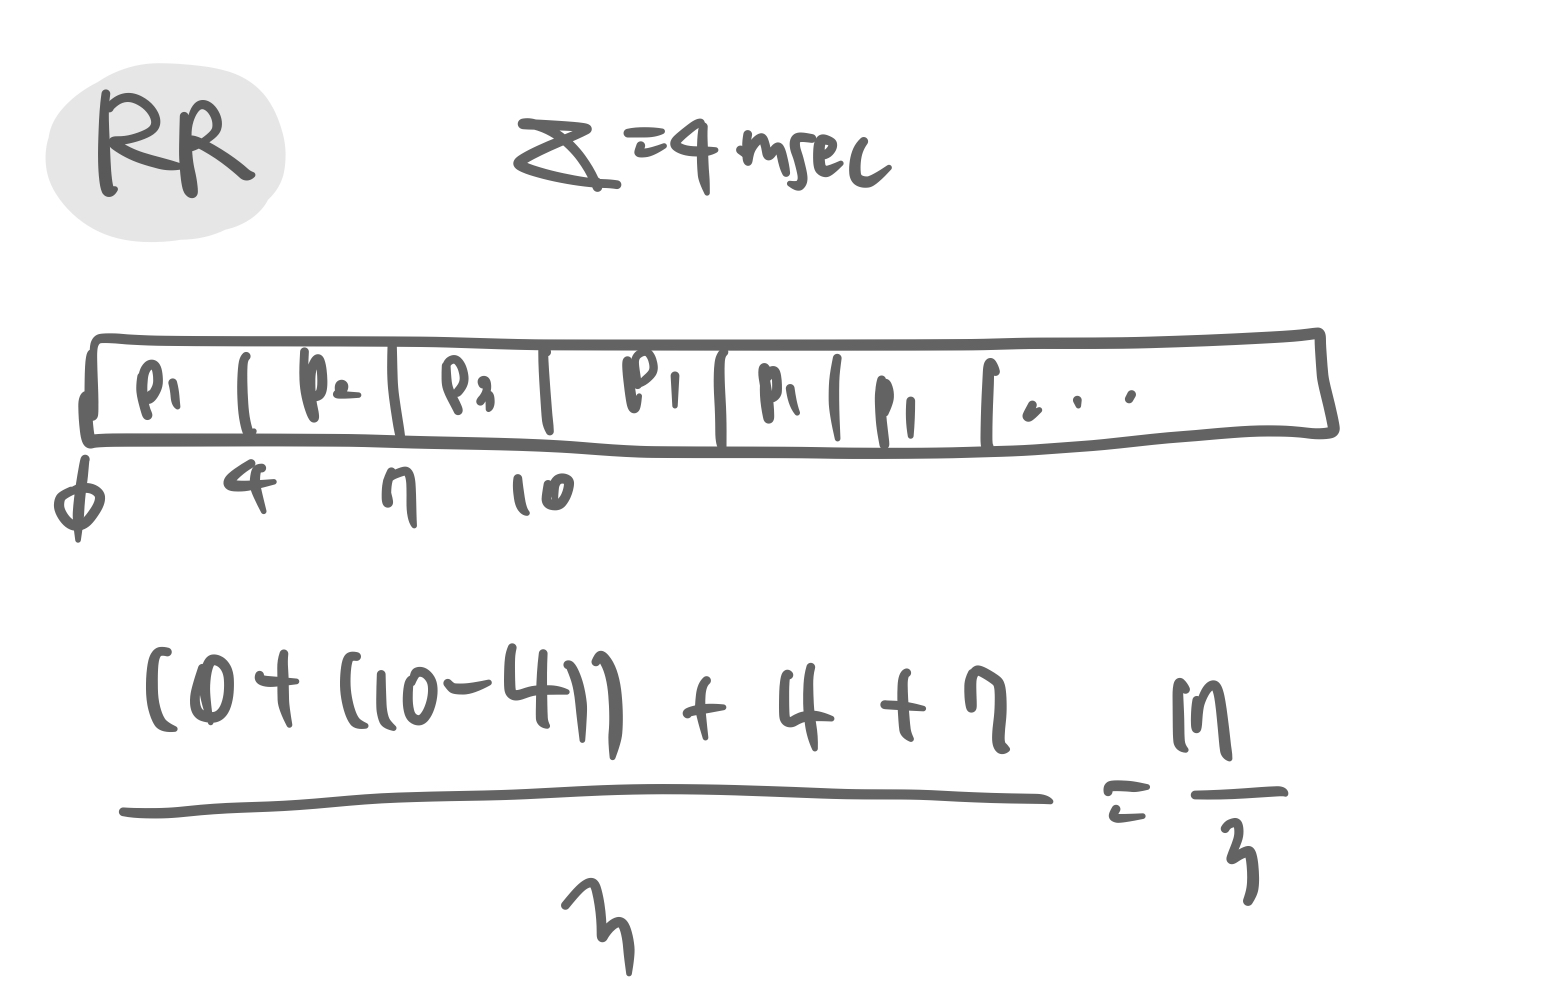 RR
Z=4 msec
P1 P2 P3 P1 P1 P1 ...
0 4 7 10
(0+(10-4))+4+7 = 17
3 3